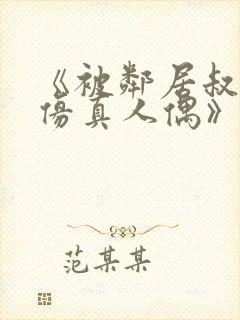 《被邻居叔
伤真人偶》
范某某